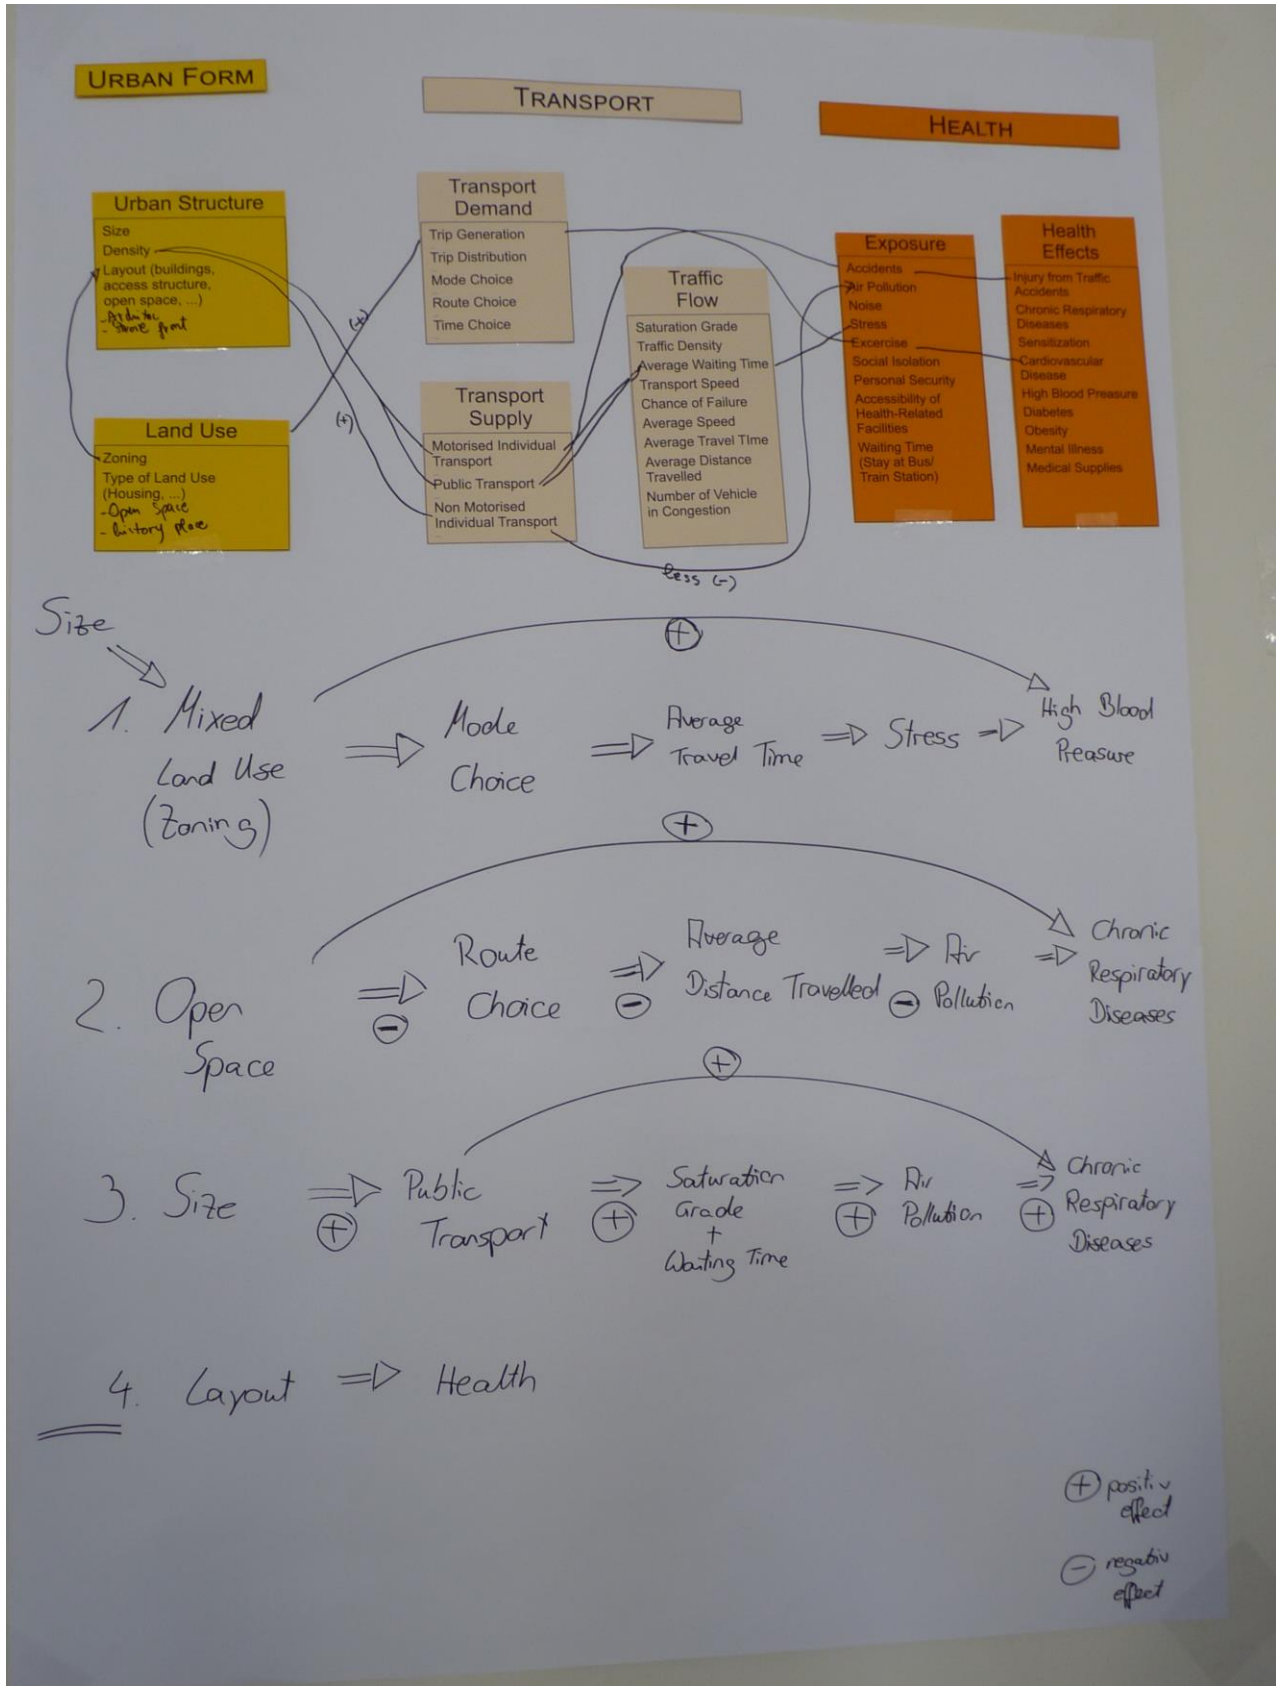 URBAN FORM
TRANSPORT
HEALTH
Urban Structure
Size
Density
Layout (buildings,
access structure,
open space, ...)
front
Land Use
Zoning
Type of Land Use
(Housing, ...)
- Open Space
- history place
Transport
Demand
Trip Generation
Trip Distribution
Mode Choice
Route Choice
Time Choice
(+)
(+)
Transport
Supply
Motorised Individual
Transport
Public Transport
Non Motorised
Individual Transport
Traffic
Flow
Saturation Grade
Traffic Density
Average Waiting Time
Transport Speed
Chance of Failure
Average Speed
Average Travel TIme
Average Distance
Travelled
Number of Vehicle
in Congestion
less (-)
Exposure
Accidents
Air Pollution
Noise
Stress
Excercise
Social Isolation
Personal Security
Accessibility of
Health-Related
Facilities
Waiting Time
(Stay at Bus/
Train Station)
Health
Effects
Injury from Traffic
Accidents
Chronic Respiratory
Diseases
Sensitization
Cardiovascular
Disease
High Blood Preasure
Diabetes
Obesity
Mental Illness
Medical Supplies
Size
+
1. Mixed
Land Use
(Zoning)
Mode
Choice
Average
Travel Time
Stress
High Blood
Preasure
+
2. Open
Space
-
Route
Choice
-
Average
Distance Travelled
-
Air
Pollution
Chronic
Respiratory
Diseases
+
3. Size
+
Public
Transport
+
Saturation
Grade
+
Waiting Time
+
Air
Pollution
+
Chronic
Respiratory
Diseases
4. Layout
Health
+ positiv
effect
- negativ
effect